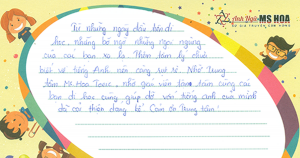 Anh Ngữ MS HOA
Từ những ngày đầu bên đi
học, những bỡ ngỡ những ngại ngùng
của các bạn xa lạ. Thêm tâm lý chưa
biết về tiếng Anh nên càng rụt rè. Nhờ Trung
tâm Ms Hoa Toeic, nhờ gần văn tâm toàn cùng các
bạn đi học cùng giúp đỡ vốn tiếng anh của mình
đã cải thiện đáng kể. Cảm ơn Trung tâm!